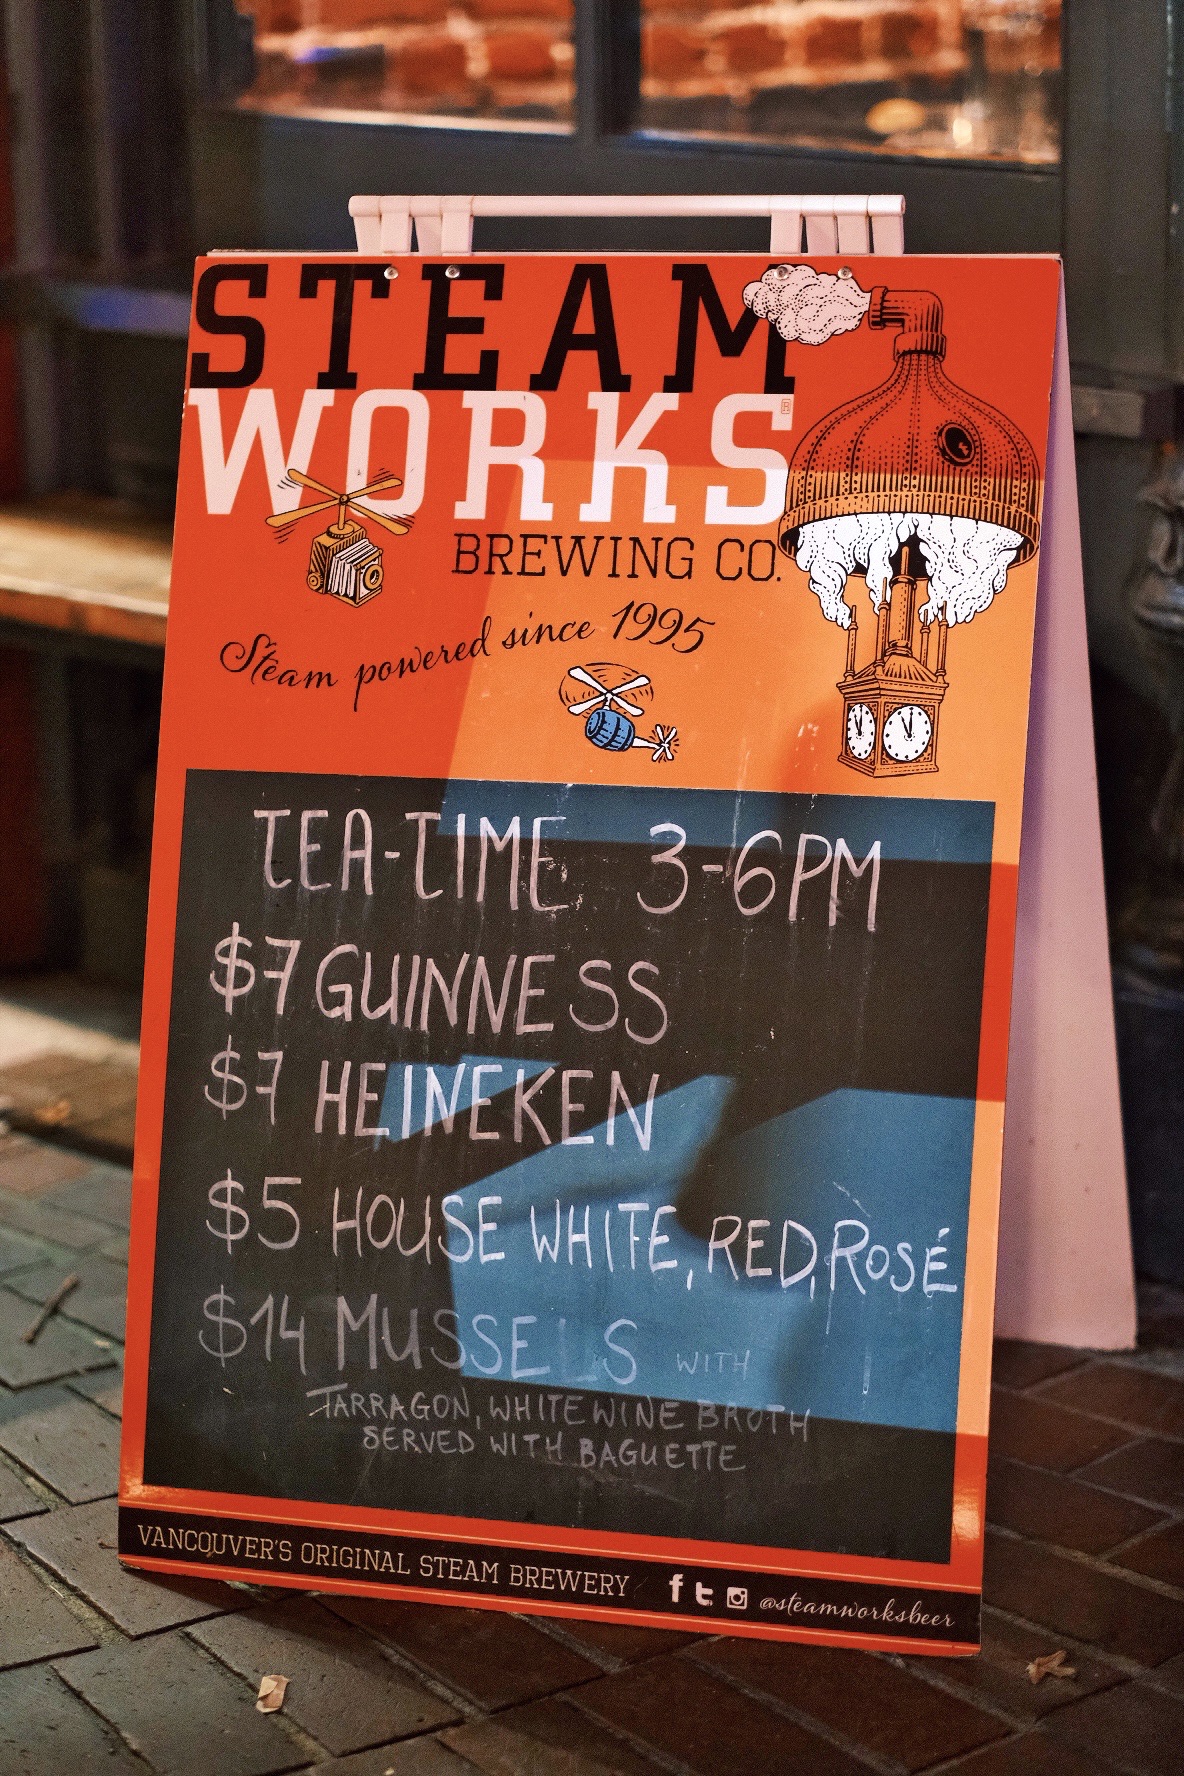 STEAM
WORKS®
BREWING CO.
Steam powered since 1995
TEA-TIME 3-6PM
$7 GUINNESS
$7 HEINEKEN
$5 HOUSE WHITE, RED, ROSÉ
$14 MUSSELS WITH
TARRAGON, WHITE WINE BROTH
SERVED WITH BAGUETTE
VANCOUVER'S ORIGINAL STEAM BREWERY f t @steamworksbeer